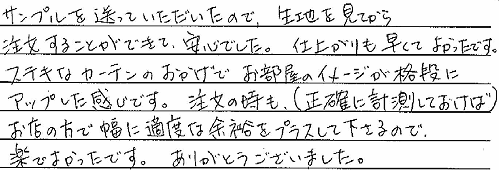 サンプルを送っていただいたので、生地を見てから
注文することができて、安心でした。 仕上がりも早くてよかったです。
ステキなカーテンのおかげで お部屋のイメージが格段に
アップした感じです。 注文の時も、(正確に計測しておけば)
お店の方で幅に適度な余裕をプラスして下さるので、
楽でよかったです。 ありがとうございました。